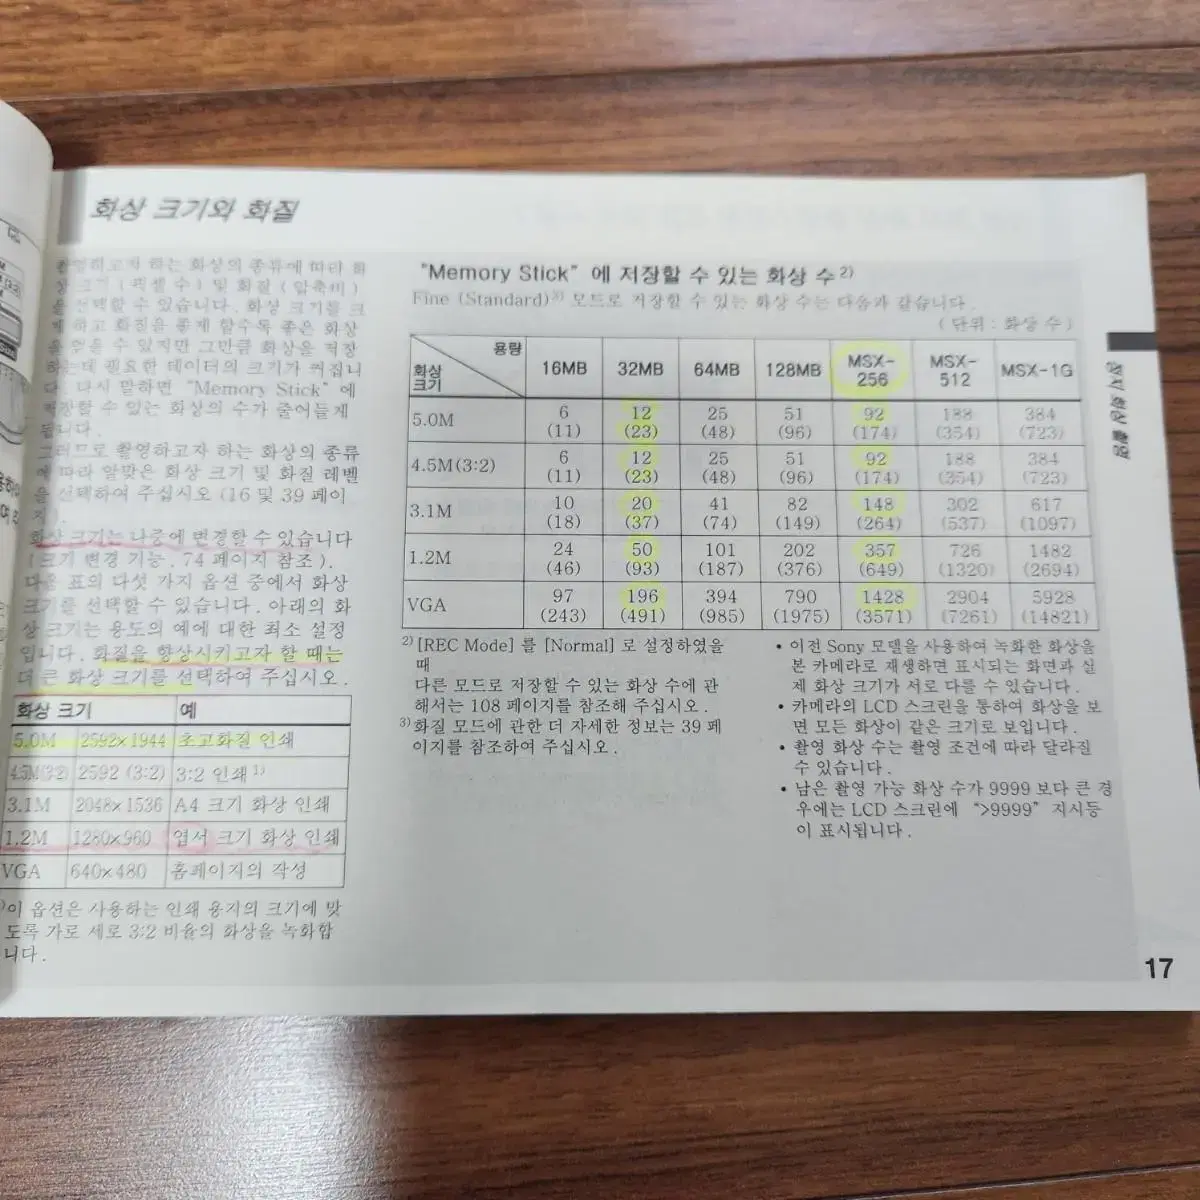 화상 크기와 화질
촬영하고자 하는 화상의 종류에 따라 화
상 크기 (픽셀 수) 및 화질 (압축비)
을 선택할 수 있습니다. 화상 크기를 크
게 하고 화질을 좋게 할수록 좋은 화상
을 얻을 수 있지만 그만큼 화상을 저장
하는데 필요한 데이터의 크기가 커집니
다. 다시 말하면 "Memory Stick" 에
저장할 수 있는 화상의 수가 줄어들게
됩니다.
그러므로 촬영하고자 하는 화상의 종류
에 따라 알맞은 화상 크기 및 화질 레벨
을 선택하여 주십시오 (16 및 39 페이
지).
화상 크기는 나중에 변경할 수 있습니다
(크기 변경 기능, 74 페이지 참조).
다음 표의 다섯 가지 옵션 중에서 화상
크기를 선택할 수 있습니다. 아래의 화
상 크기는 용도의 예에 대한 최소 설정
입니다. 화질을 향상시키고자 할 때는
더 큰 화상 크기를 선택하여 주십시오.
화상 크기 예
5.0M 2592×1944 초고화질 인쇄
4.5M(3:2) 2592 (3:2) 3:2 인쇄1)
3.1M 2048×1536 A4 크기 화상 인쇄
1.2M 1280×960 엽서 크기 화상 인쇄
VGA 640×480 홈페이지의 작성
이 옵션은 사용하는 인쇄 용지의 크기에 맞
도록 가로 세로 3:2 비율의 화상을 녹화합
니다.
"Memory Stick" 에 저장할 수 있는 화상 수2)
Fine (Standard)3) 모드로 저장할 수 있는 화상 수는 다음과 같습니다.
(단위 : 화상 수)
용량
화상
크기
16MB 32MB 64MB 128MB MSX-256 MSX-512 MSX-1G
5.0M 6 12 25 51 92 188 384
(11) (23) (48) (96) (174) (354) (723)
4.5M(3:2) 6 12 25 51 92 188 384
(11) (23) (48) (96) (174) (354) (723)
3.1M 10 20 41 82 148 302 617
(18) (37) (74) (149) (264) (537) (1097)
1.2M 24 50 101 202 357 726 1482
(46) (93) (187) (376) (649) (1320) (2694)
VGA 97 196 394 790 1428 2904 5928
(243) (491) (985) (1975) (3571) (7261) (14821)
2) [REC Mode] 를 [Normal] 로 설정하였을
때
다른 모드로 저장할 수 있는 화상 수에 관
해서는 108 페이지를 참조해 주십시오.
3) 화질 모드에 관한 더 자세한 정보는 39 페
이지를 참조하여 주십시오.
• 이전 Sony 모델을 사용하여 녹화한 화상을
본 카메라로 재생하면 표시되는 화면과 실
제 화상 크기가 서로 다를 수 있습니다.
• 카메라의 LCD 스크린을 통하여 화상을 보
면 모든 화상이 같은 크기로 보입니다.
• 촬영 화상 수는 촬영 조건에 따라 달라질
수 있습니다.
• 남은 촬영 가능 화상 수가 9999 보다 큰 경
우에는 LCD 스크린에 ">9999" 지시등
이 표시됩니다.
정지 화상 촬영
17